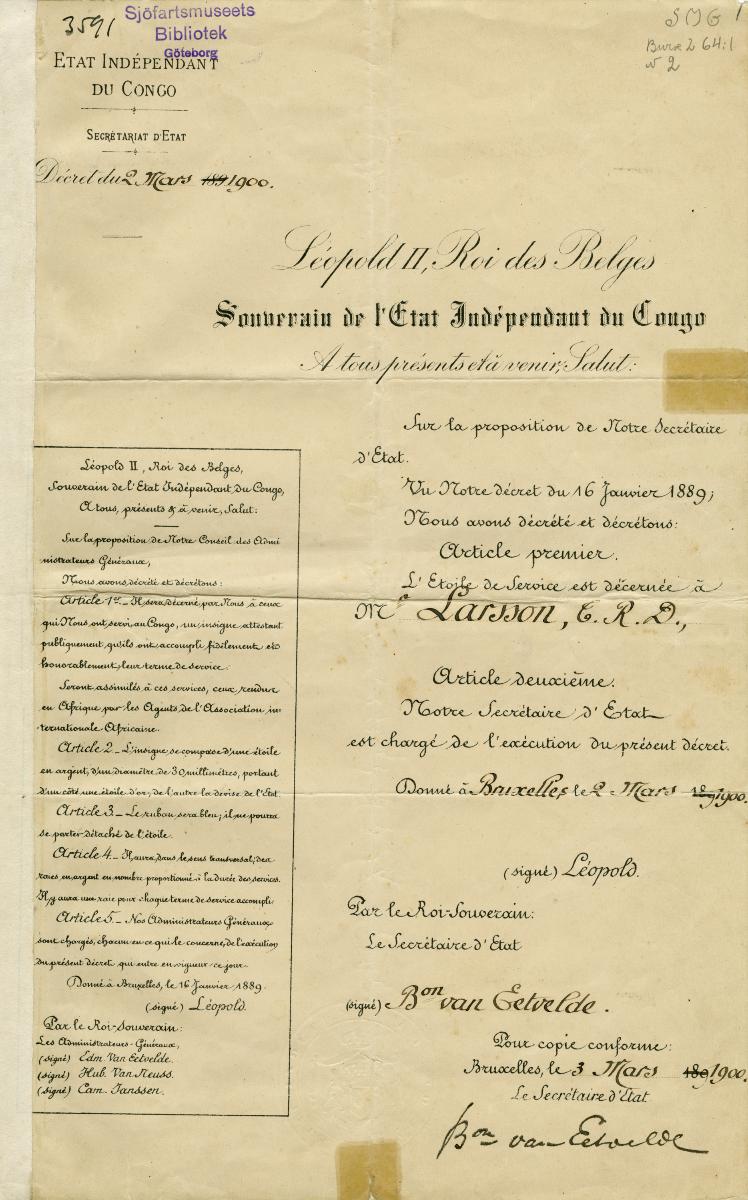 3591
Sjöfartsmuseets
Bibliotek
Göteborg
SMG 1
64:1
2
ETAT INDÉPENDANT
DU CONGO
SECRÉTARIAT D'ETAT
Décret du 2 Mars 189 1900.
Léopold II, Roi des Belges
Souverain de l'Etat Indépendant du Congo
A tous présents et à venir, Salut:
Sur la proposition de Notre Secrétaire
d'Etat.
Vu Notre décret du 16 Janvier 1889;
Nous avons décrété et décrétons:
Article premier.
L'Etoile de Service est décernée à
Mr Larsson, C. R. D.,
Article deuxième.
Notre Secrétaire d'Etat
est chargé de l'exécution du présent décret.
Donné à Bruxelles, le 2 Mars 189 1900.
(signé) Léopold.
Par le Roi-Souverain:
Le Secrétaire d'Etat
(signé) Bon van Eetvelde.
Pour copie conforme:
Bruxelles, le 3 Mars 189 1900.
Le Secrétaire d'Etat
Bon van Eetvelde
Léopold II, Roi des Belges,
Souverain de l'Etat Indépendant du Congo,
A tous, présents & à venir, Salut:
Sur la proposition de Notre Conseil des Admi
nistrateurs Généraux,
Nous avons décrété et décrétons:
Article 1er_ Il sera décerné par Nous à ceux
qui Nous ont servi au Congo, un insigne attestant
publiquement qu'ils ont accompli fidèlement et
honorablement leur terme de service.
Seront assimilés à ces services, ceux rendus
en Afrique par les Agents de l'Association in-
ternationale Africaine.
Article 2_ L'insigne se compose d'une étoile
en argent, d'un diamètre de 30 millimètres, portant
d'un côté une étoile d'or, de l'autre la devise de l'Etat.
Article 3_ Le ruban sera bleu; il ne pourra
se porter détaché de l'étoile.
Article 4_ Il y aura, dans le sens transversal, des
raies en argent en nombre proportionné à la durée des services.
Il y aura une raie pour chaque terme de service accompli.
Article 5_ Nos Administrateurs Généraux
sont chargés, chacun en ce qui le concerne, de l'exécution
du présent décret qui entre en vigueur ce jour.
Donné à Bruxelles, le 16 Janvier 1889.
(signé) Léopold.
Par le Roi-Souverain:
Les Administrateurs-Généraux,
(signé) Edm. Van Eetvelde.
(signé) Hub. Van Neuss.
(signé) Cam. Janssen.